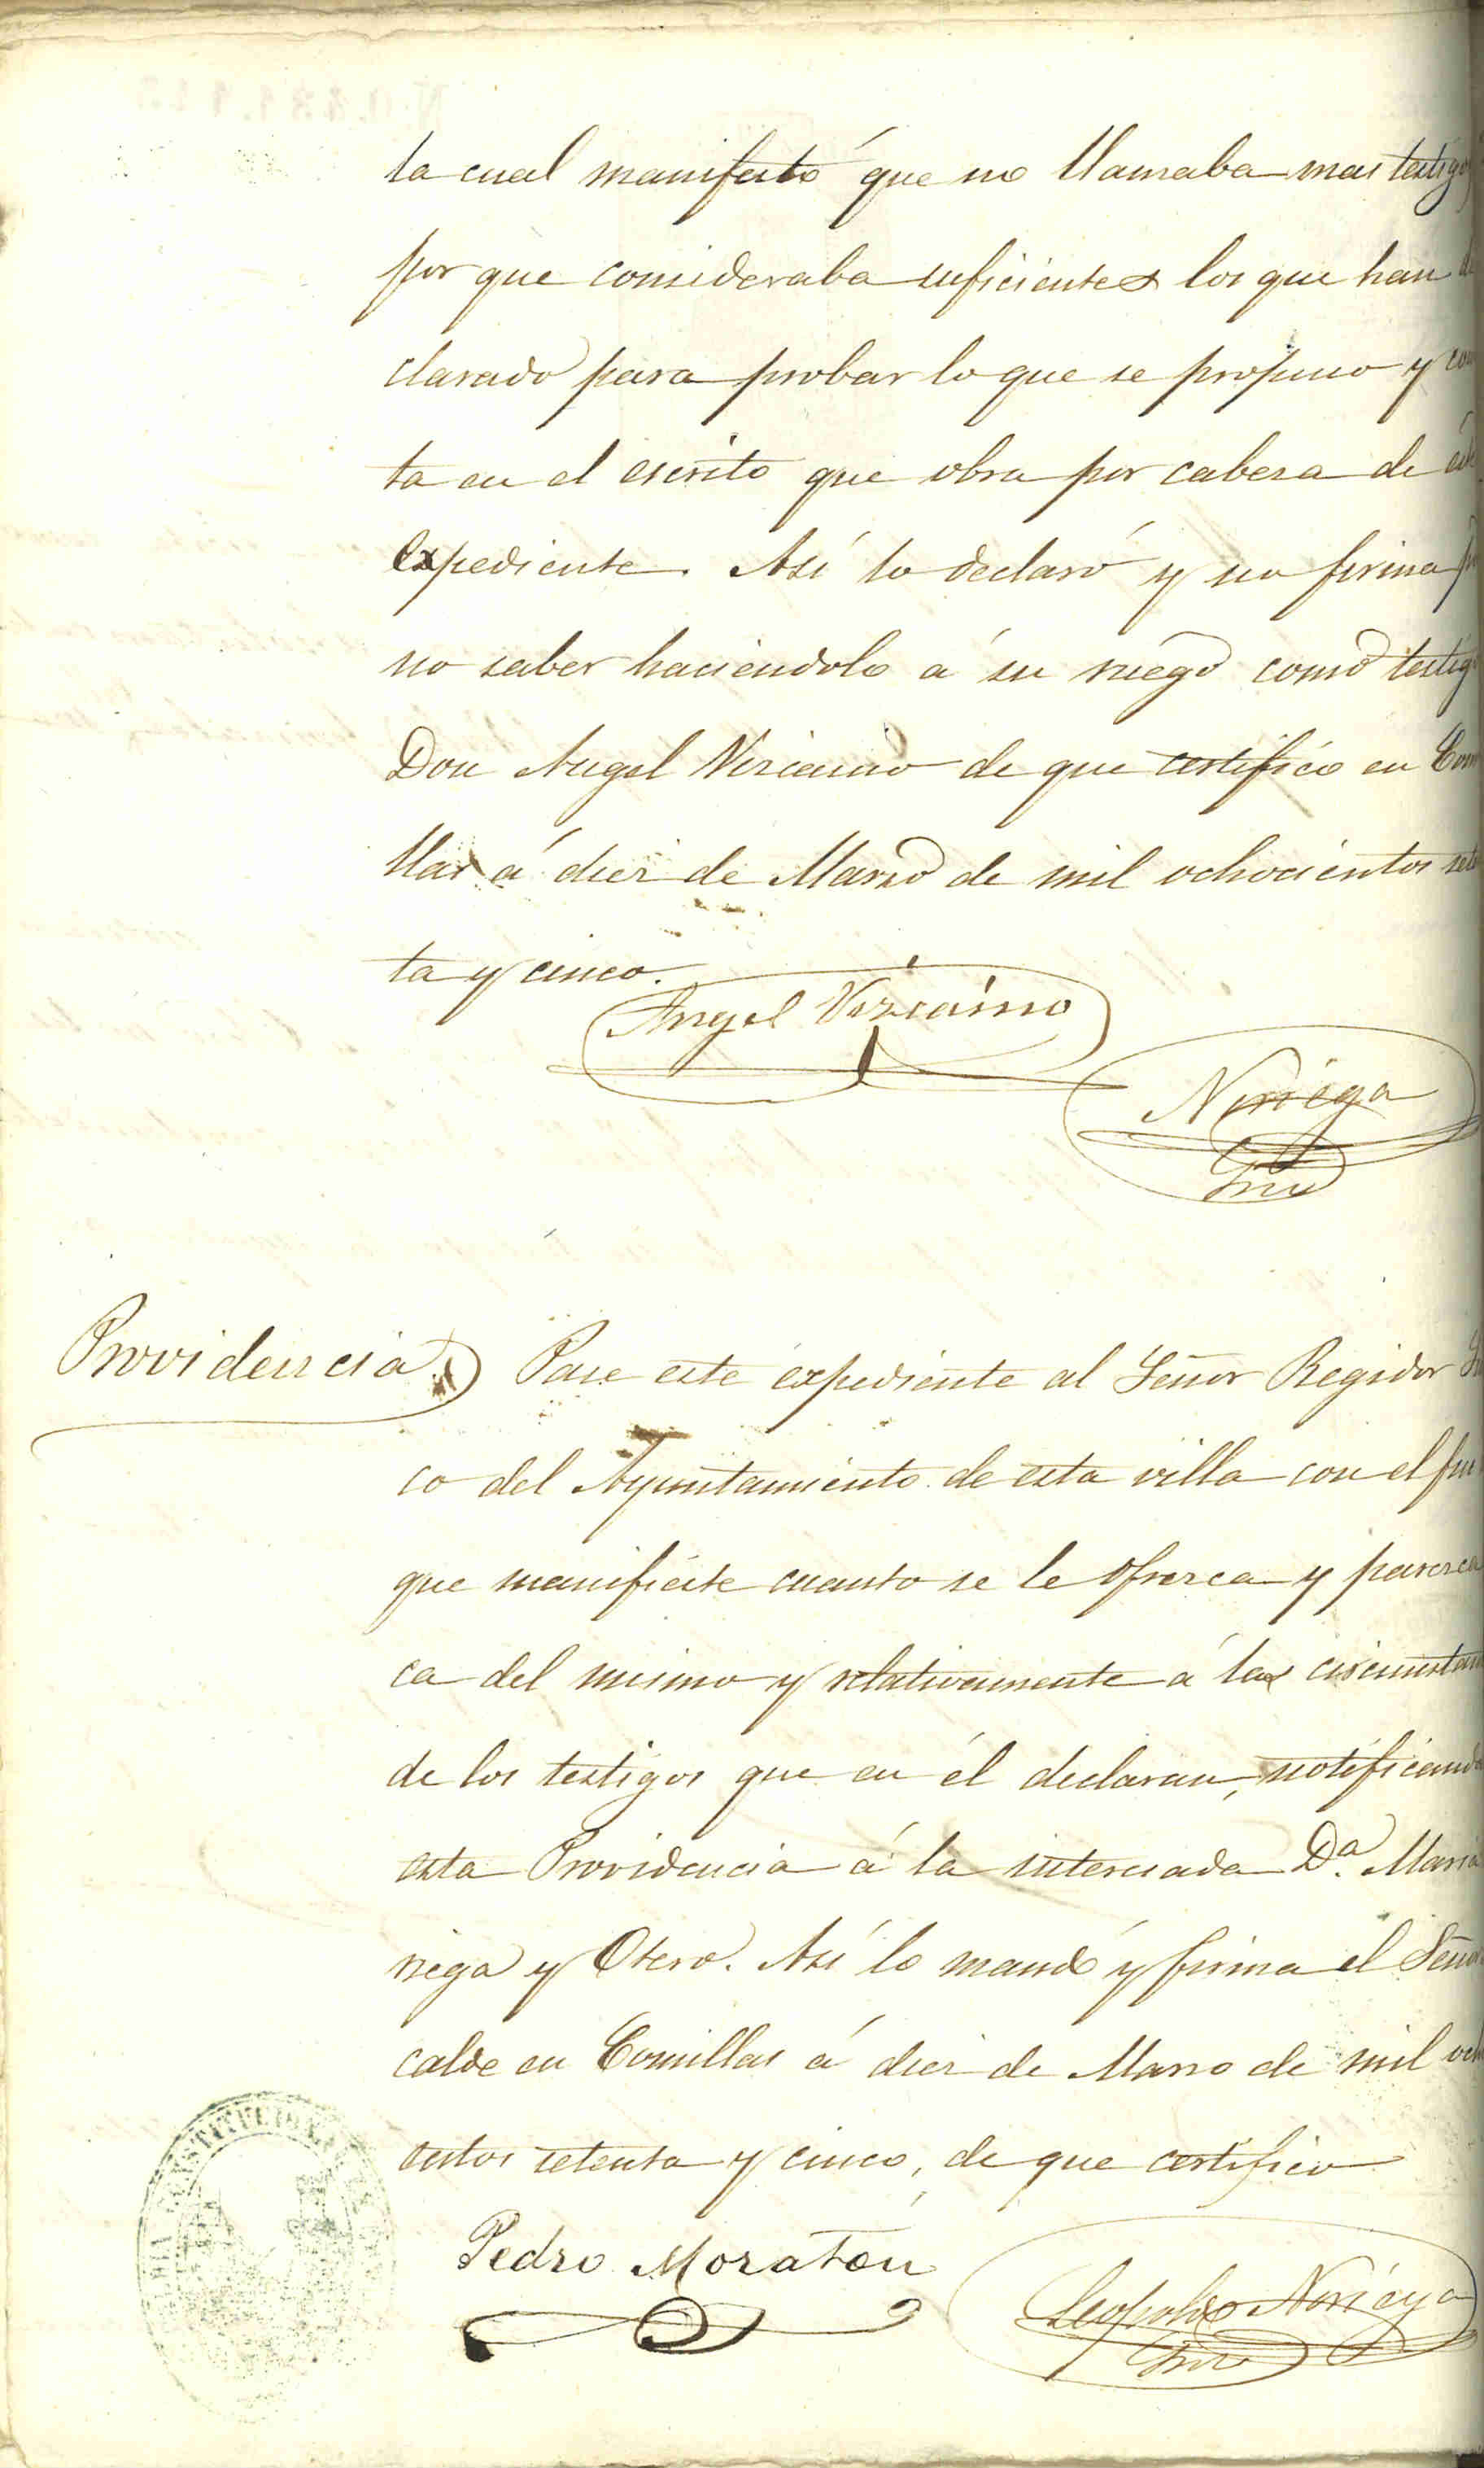 la cual manifestó que no llamaba mas testigos
por que consideraba suficientes los que han de
clarado para probar lo que se propuso y cons
ta en el escrito que obra por cabeza de éste
expediente. Así lo declaró y no firma por
no saber haciendolo á su ruego como testigo
Don Angel Vizcaino de que certifico en Comi
llas á diez de Marzo de mil ochocientos seten
ta y cinco.
Angel Vizcaino
Noriega
Srio
Providencia.) Pase este expediente al Señor Regidor
co del Ayuntamiento de esta villa con el fin
que manifieste cuanto se le ofrezca y parezca
ca del mismo y relativamente á las circunstan
de los testigos que en él declaran, notificando
esta Providencia á la interesada D.ª Maria
riega y Otero. Así lo mandó y firma el Señor
calde en Comillas á diez de Marzo de mil ocho
cientos setenta y cinco, de que certifico
Pedro Moraton
Leopoldo Noriega
Srio
CONSTITUCIONAL